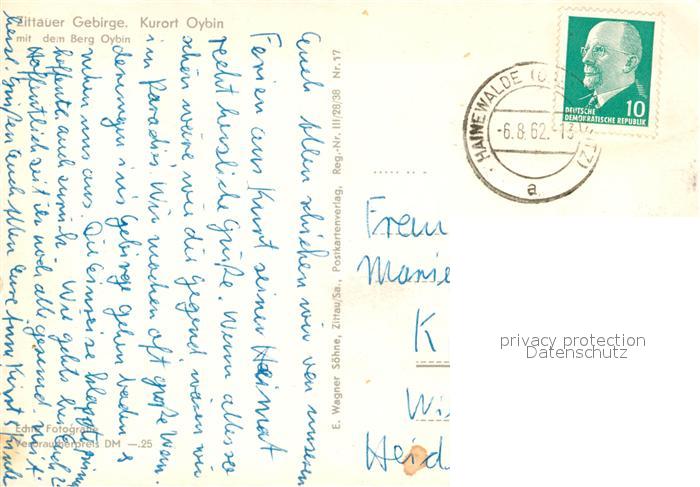 Zittauer Gebirge. Kurort Oybin
mit dem Berg Oybin
Euch Allen schicken wir von unseren
Ferien aus Kurt seiner Heimat
recht herzliche Grüße. Wenn alles so
schön wäre wie die gegend wären wir
im Paradis. Wir machen oft große Wan-
derungen ins Gebirge gehen baden &
ruhen uns aus. Die Einreise klappte prima
hoffentl. auch zurück. Wie gehts bei Euch?
Hoffentlich seit ihr noch alle gesund. Mit
herzl. Grüßen Euch Allen Eure Kurt
Echte Fotografie
Verbraucherpreis DM —.25
E. Wagner Söhne, Zittau/Sa., Postkartenverlag, Reg.-Nr. III/28/38 Nr. 17
HAINEWALDE
-6.8.62.-13
a
DEUTSCHE
DEMOKRATISCHE REPUBLIK
10
Frau
Marie
K
Wi
Heid
privacy protection
Datenschutz